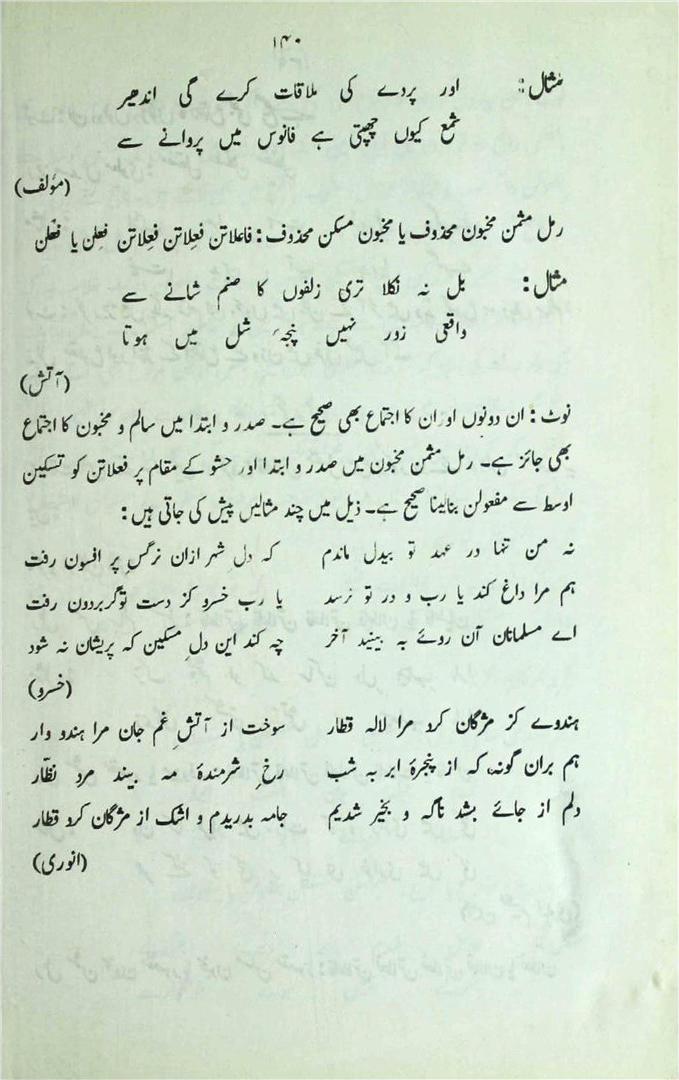 ۱۴۰
مثال: اور پردے کی ملاقات کرے گی اندھیر
شمع کیوں چھپتی ہے فانوس میں پروانے سے
(مؤلف)
رمل مثمن مخبون محذوف یا مخبون مسکن محذوف: فاعلاتن فعِلاتن فعِلاتن فعِلن یا فعْلن
مثال: بل نہ نکلا تری زلفوں کا صنم شانے سے
واقعی زور نہیں پنجۂ شل میں ہوتا
(آتش)
نوٹ: ان دونوں اوزان کا اجتماع بھی صحیح ہے۔ صدر و ابتدا میں سالم و مخبون کا اجتماع
بھی جائز ہے۔ رمل مثمن مخبون میں صدر و ابتدا اور حشو کے مقام پر فعلاتن کو تسکین
اوسط سے مفعولن بنالینا صحیح ہے۔ ذیل میں چند مثالیں پیش کی جاتی ہیں:
نہ من تنہا در عہد تو بیدل ماندم کہ دل شہر ازان نرگسِ پر افسون رفت
ہم مرا داغ کند یا رب و در تو نرسد یا رب خسرو کز دست تو گردون رفت
اے مسلمانان آن روئے بہ بینید آخر چہ کند این دلِ مسکین کہ پریشان نہ شود
(خسرو)
ہندوے کز مژگان کرد مرا لالہ قطار سوخت از آتشِ غم جان مرا ہندو وار
ہم بران گونہ کہ از پنجرۂ ابر بہ شب رخِ شرمندۂ مہ بیند مرد نظّار
دلم از جائے بشد ناگہ و بخیر شدیم جامہ بدریدم و اشک از مژگان کرد قطار
(انوری)